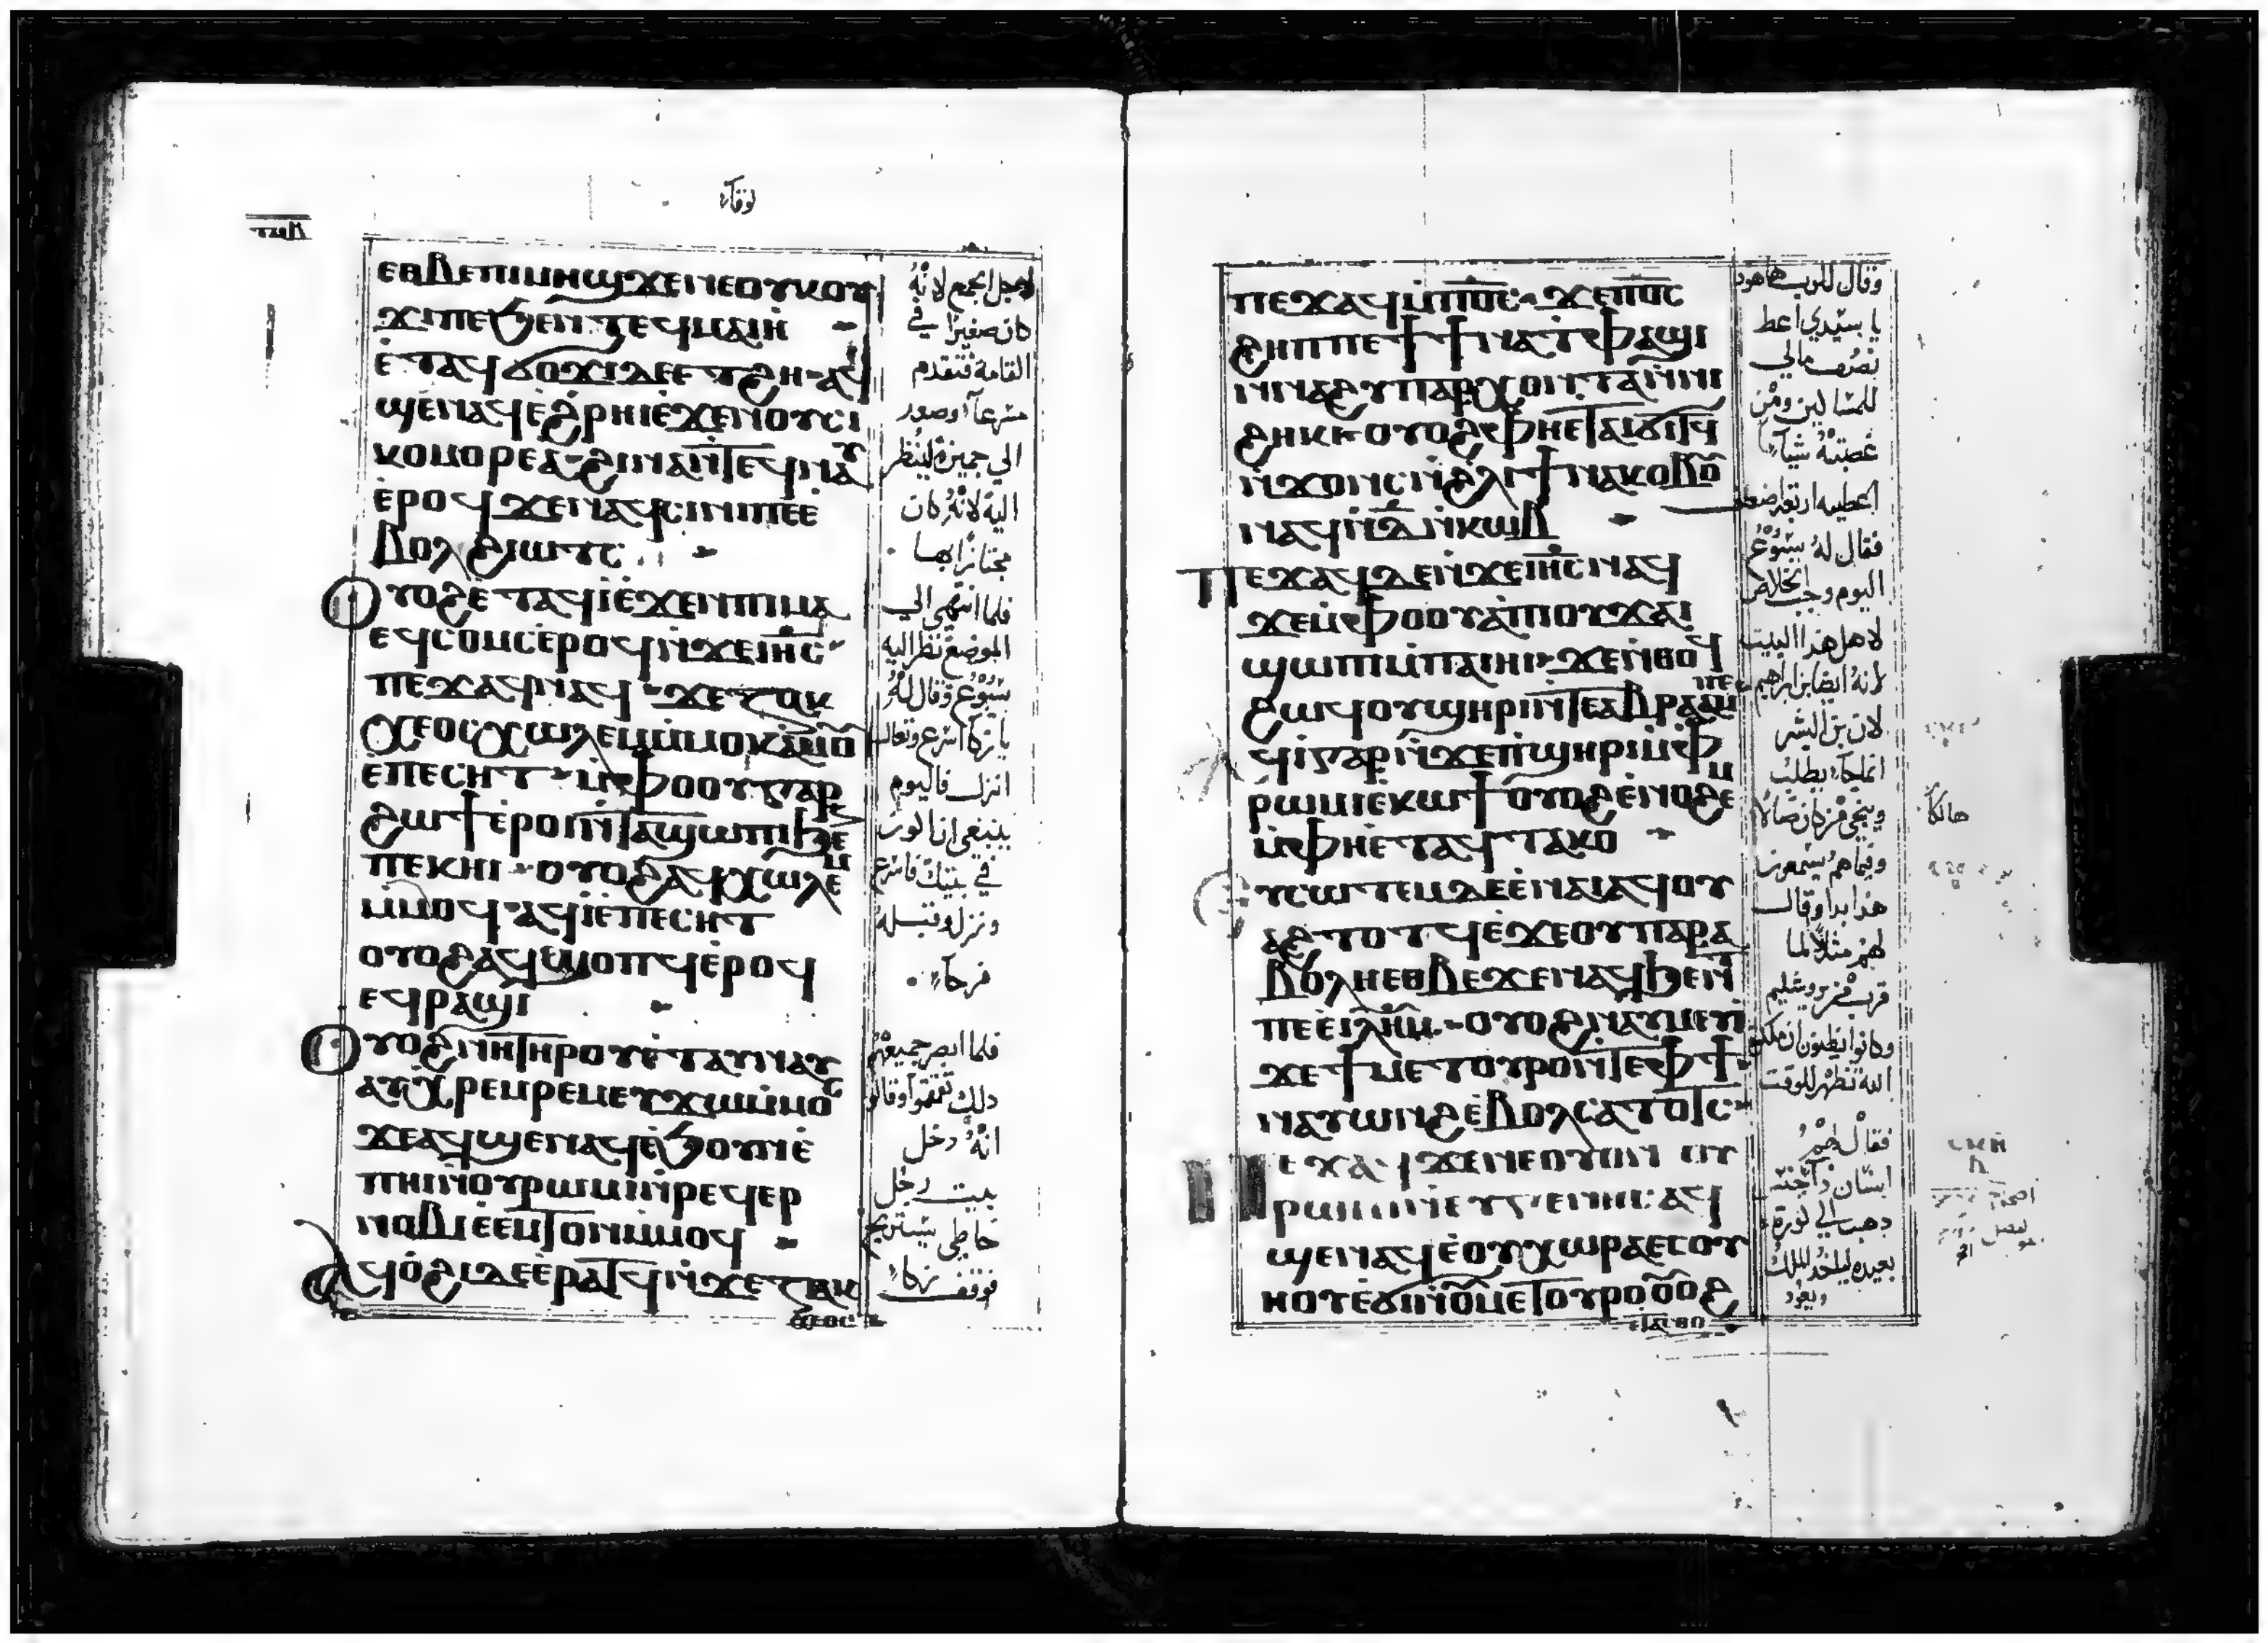 لوقا
ⲉⲑⲃⲉⲡⲓⲙⲏϣϫⲉⲛⲉⲟⲩⲕⲟⲩ
ϫⲓⲡⲉϧⲉⲛⲧⲉϥⲙⲁⲓⲏ
ⲉⲧⲁϥϭⲟϫⲓⲇⲉⲉⲧϩⲏⲁϥ
ϣⲉⲛⲁϥⲉϩⲣⲏⲓⲉϫⲉⲛⲟⲩⲥⲓ
ⲕⲟⲙⲟⲣⲉⲁϩⲓⲛⲁⲛⲧⲉϥⲛⲁⲩ
ⲉⲣⲟϥϫⲉⲛⲁϥⲥⲓⲛⲓⲡⲉⲉ
ⲃⲟⲗϩⲓⲱⲧⲥ
ⲟⲩⲟϩⲉⲧⲁϥⲓⲉϫⲉⲛⲡⲓⲙⲁ
ⲉϥⲥⲟⲙⲥⲉⲣⲟϥⲛϫⲉⲓⲏⲥ
ⲡⲉϫⲁϥⲛⲁϥϫⲉⲍⲁⲕ
ⲭⲉⲟⲥⲭⲱⲗⲉⲙⲙⲙⲟⲕⲁⲙⲟⲩ
ⲉⲡⲉⲥⲏⲧⲙⲫⲟⲟⲩⲅⲁⲣ
ϩⲱϯⲉⲣⲟⲓⲛⲧⲁϣⲱⲡⲓϧⲉⲛ
ⲡⲉⲕⲏⲓⲟⲩⲟϩⲁϥⲭⲱⲗⲉⲙ
ⲙⲙⲟϥⲁϥⲓⲉⲡⲉⲥⲏⲧ
ⲟⲩⲟϩⲁϥϣⲟⲡϥⲉⲣⲟϥ
ⲉϥⲣⲁϣⲓ
ⲟⲩⲟϩⲛⲏⲧⲏⲣⲟⲩⲉⲧⲁⲩⲛⲁⲩ
ⲁⲩⲭⲣⲉⲙⲣⲉⲙⲉⲩϫⲱⲙⲙⲟⲥ
ϫⲉⲁϥϣⲉⲛⲁϥⲉϧⲟⲩⲛⲉ
ⲡⲏⲓⲛⲟⲩⲣⲱⲙⲓⲛⲣⲉϥⲉⲣ
ⲛⲟⲃⲓⲉⲉⲙⲧⲟⲛⲙⲙⲟϥ
ⲁϥⲟϩⲓⲇⲉⲉⲣⲁⲧϥⲛϫⲉⲍⲁⲕ
ⲭⲉⲟⲥ
لاجل الجمع لانه
كان صغيرا في
القامة فتقدم
مسرعا وصعد
الي جميزة لينظر
اليه لانه كان
مجتازا بها
فلما انتهى الي
الموضع نظر اليه
يسوع وقال له
يا زكا اسرع وتعال
انزل فاليوم
ينبغي انا اكون
في بيتك فاسرع
ونزل وقبله
فرحا
فلما ابصر جميعهم
ذلك تقمقموا وقالوا
انه دخل
بيت رجل
خاطي يستريح
فوقف زكا
ⲡⲉϫⲁϥⲙⲡⲟⲥϫⲉⲡⲟⲥ
ϩⲏⲡⲡⲉϯϯⲛⲁⲧⲫⲁϣⲓ
ⲛⲛⲁϩⲩⲡⲁⲣⲭⲟⲛⲧⲁⲛⲛⲓ
ϩⲏⲕⲕⲟⲩⲟϩⲫⲏⲉⲧⲁⲓϭⲓⲧϥ
ⲛϫⲟⲛⲥⲛϩⲗⲓϯⲛⲁⲕⲟⲃⲟⲩ
ⲛⲁϥⲛⲇⲛⲕⲱⲃ
ⲡⲉϫⲁϥⲇⲉⲛϫⲉⲓⲏⲥⲛⲁϥ
ϫⲉⲙⲫⲟⲟⲩⲁⲡⲟⲩϫⲁⲓ
ϣⲱⲡⲓⲙⲡⲁⲓⲏⲓϫⲉⲛⲑⲟϥ
ϩⲱϥⲟⲩϣⲏⲣⲓⲛⲧⲉⲁⲃⲣⲁⲁⲙⲡⲉ
ϥⲓⲅⲁⲣⲛϫⲉⲡϣⲏⲣⲓⲙⲫ
ⲣⲱⲙⲓⲉⲕⲱϯⲟⲩⲟϩⲉⲛⲟϩⲉⲙ
ⲙⲫⲏⲉⲧⲁϥⲧⲁⲕⲟ
ⲩⲥⲱⲧⲉⲙⲇⲉⲉⲛⲁⲓⲁϥⲟⲩ
ⲁϩⲧⲟⲧϥⲉϫⲉⲟⲩⲡⲁⲣⲁ
ⲃⲟⲗⲏⲉⲑⲃⲉϫⲉⲛⲁϥϧⲉⲛⲧ
ⲡⲉⲉⲓⲗⲏⲙⲟⲩⲟϩⲛⲁⲩⲙⲉⲩⲓ
ϫⲉϯⲙⲉⲧⲟⲩⲣⲟⲛⲧⲉⲫϯ
ⲛⲁⲟⲩⲱⲛϩⲉⲃⲟⲗⲥⲁⲧⲟⲧⲥ
ⲡⲉϫⲁϥϫⲉⲛⲉⲟⲩⲟⲛⲟⲩ
ⲣⲱⲙⲓⲛⲉⲩⲅⲉⲛⲏⲥⲁϥ
ϣⲉⲛⲁϥⲉⲟⲩⲭⲱⲣⲁⲉⲥⲟⲩ
ⲏⲟⲩⲉϭⲓⲛⲟⲩⲙⲉⲧⲟⲩⲣⲟⲟⲩⲟϩ
ⲉⲧⲁⲥⲑⲟ
وقال للرب هاهوذا
يا سيدي اعطي
نصف مالي
للمساكين ومن
غصبته شيا
اعطيه اربعة اضعاف
فقال له يسوع
اليوم وجب الخلاص
لاهل هذا البيت
لانه ايضا بن ابراهيم
لان بن البشر
انما جاء يطلب
وينجي من كان ضالا
وفيما هم يسمعون
هذا بدا وقال
لهم مثلا لما
قرب من يروشليم
وكانوا يظنون ان ملكوت
الله تظهر للوقت
فقال لهم
انسان ذا جنس
ذهب الي كورة
بعيده لياخذ الملك
ويعود
هالكا